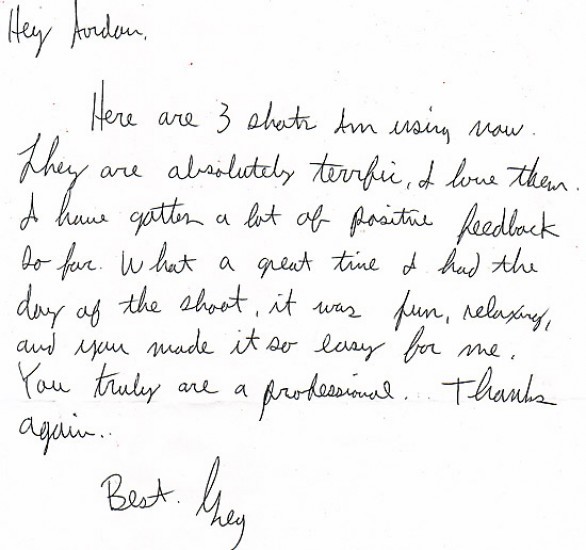 Hey Jordan,
Here are 3 shots Im using now.
They are absolutely terrific, I love them.
I have gotten a lot of positive feedback
so far. What a great time I had the
day of the shoot, it was fun, relaxing,
and you made it so easy for me.
You truly are a professional... Thanks
again..
Best. Greg